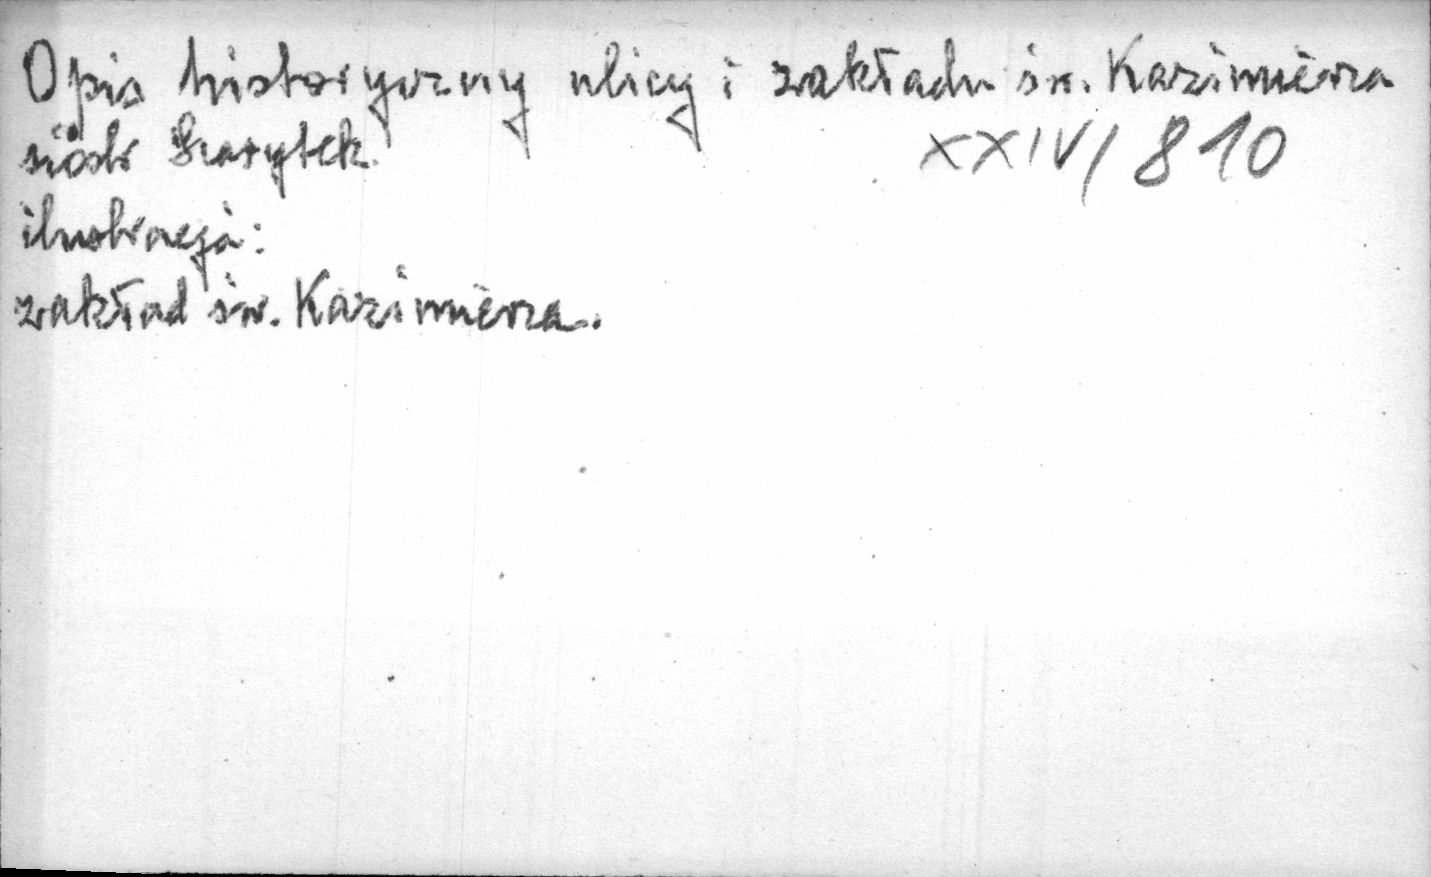 Opis historyczny ulicy i zakładu św. Kazimierza
sióstr Szarytek.
XXIV/810
ilustracja:
zakład św. Kazimierza.